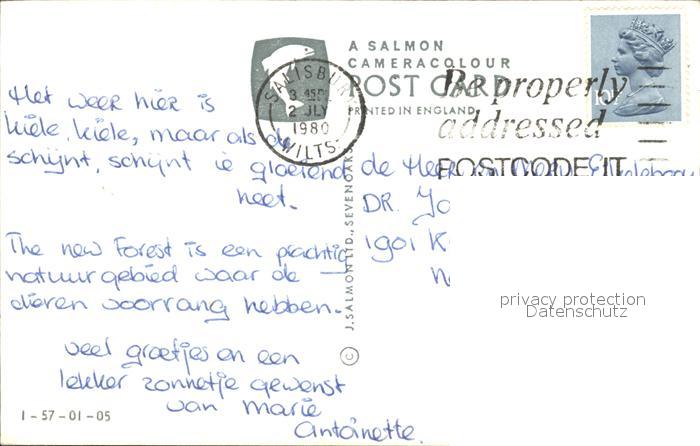 A SALMON
CAMERACOLOUR
POST CARD
PRINTED IN ENGLAND
SALISBURY
2 JLY
1980
WILTS.
Be properly
addressed
POSTCODE IT
Het weer hier is
kiele, kiele, maar als de
schijnt, schijnt ie gloeiend
heet.
The new Forest is een prachtig
natuurgebied waar de
dieren voorrang hebben.
veel groetjes en een
lekker zonnetje gewenst
van Marie
Antoinette.
1-57-01-05
© J. SALMON LTD., SEVENOAKS
de Heer en Mevr.
DR. Jo
1901 K
privacy protection
Datenschutz